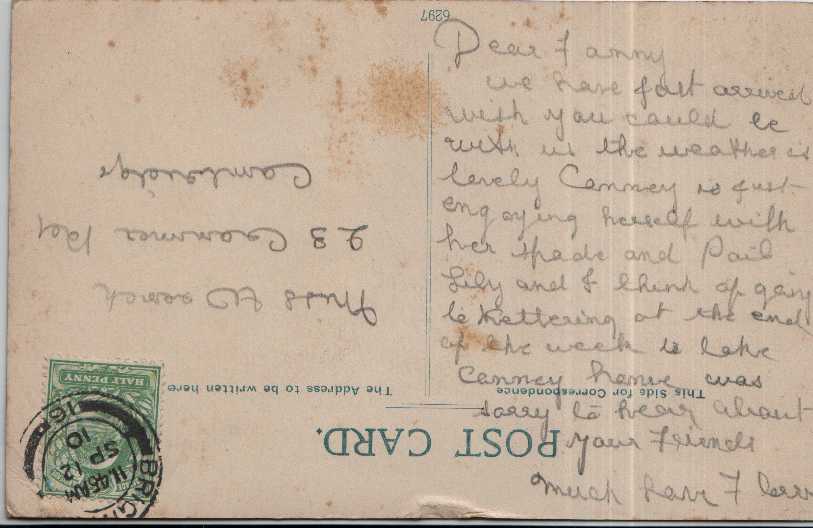 6297
Dear Fanny
we have just arrived
wish you could be
with us the weather is
lovely Canney is just
engoying herself with
her spade and Pail
Lily and I think of going
to Kettering at the end
of the week to take
Canney home was
sorry to hear about
your Friends
Much love F
POST CARD.
This Side for Correspondence
The Address to be written here
Miss
23 Cranmer Rd
Cambridge
HALF PENNY
BRIGH
11.45AM
SP 12
10